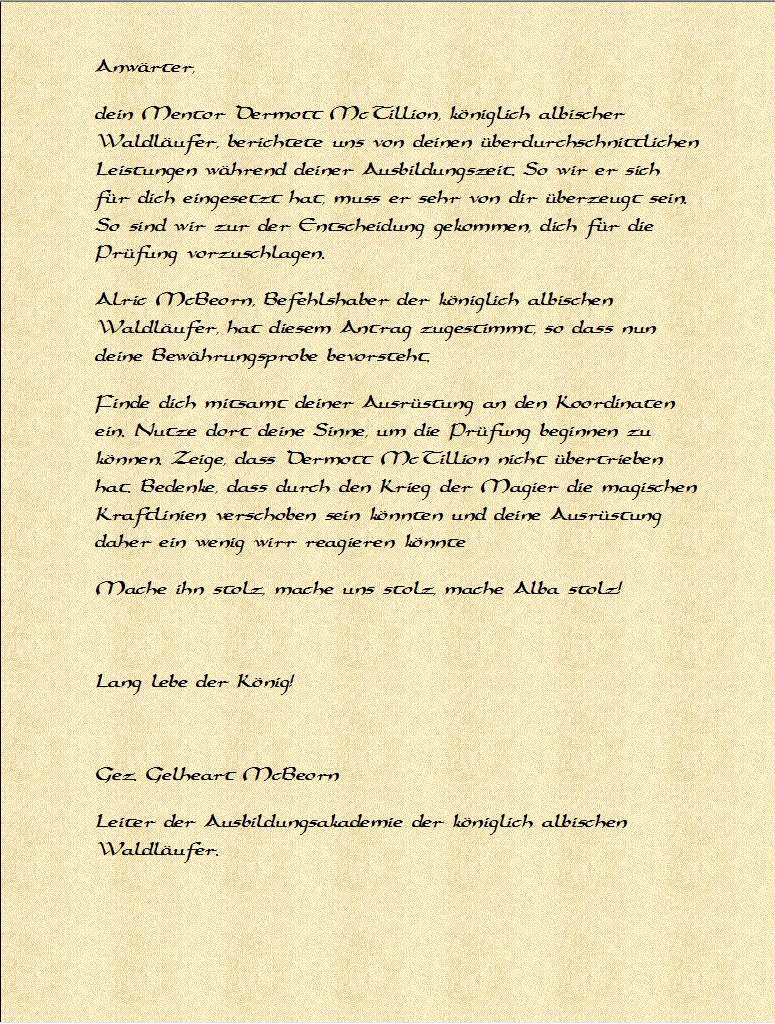 Anwärter,
dein Mentor Dermott McTillion, königlich albischer
Waldläufer, berichtete uns von deinen überdurchschnittlichen
Leistungen während deiner Ausbildungszeit. So wir er sich
für dich eingesetzt hat, muss er sehr von dir überzeugt sein.
So sind wir zur der Entscheidung gekommen, dich für die
Prüfung vorzuschlagen.
Alric McBeorn, Befehlshaber der königlich albischen
Waldläufer, hat diesem Antrag zugestimmt, so dass nun
deine Bewährungsprobe bevorsteht.
Finde dich mitsamt deiner Ausrüstung an den Koordinaten
ein. Nutze dort deine Sinne, um die Prüfung beginnen zu
können. Zeige, dass Dermott McTillion nicht übertrieben
hat. Bedenke, dass durch den Krieg der Magier die magischen
Kraftlinien verschoben sein könnten und deine Ausrüstung
daher ein wenig wirr reagieren könnte
Mache ihn stolz, mache uns stolz, mache Alba stolz!
Lang lebe der König!
Gez. Gelheart McBeorn
Leiter der Ausbildungsakademie der königlich albischen
Waldläufer.